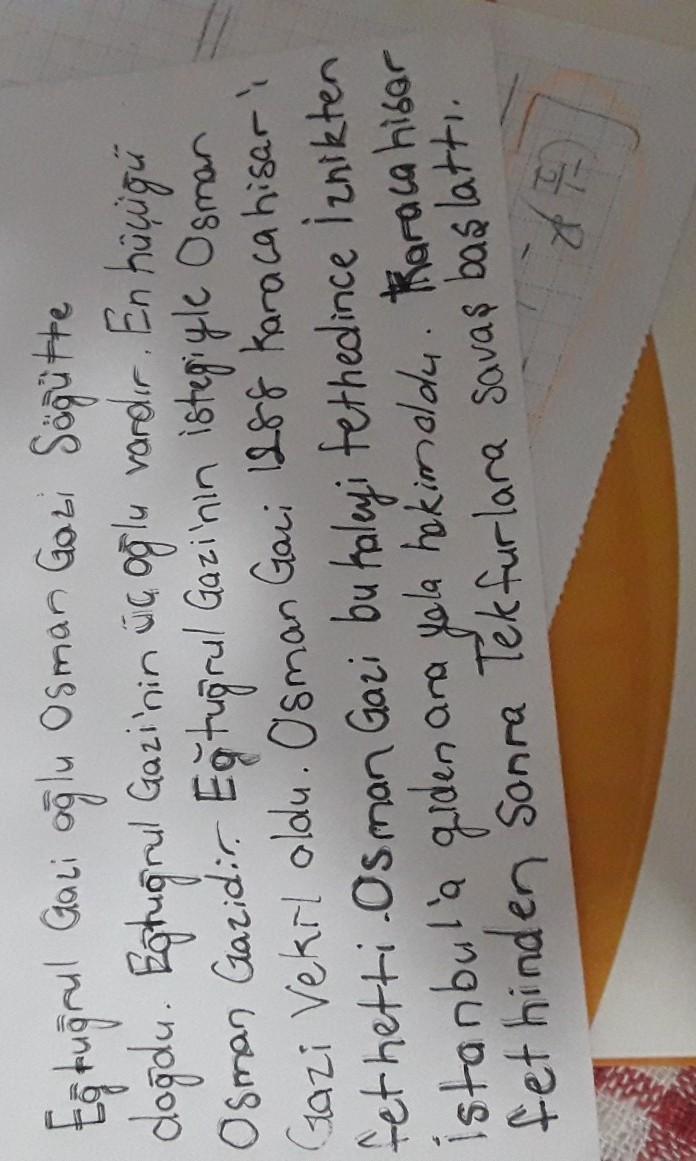 Eğtuğrul Gazi oğlu Osman Gazi Söğütte
doğdu. Eğtuğrul Gazi'nin üç oğlu vardır. En hüçüğü
Osman Gazidir. Eğtuğrul Gazi'nin isteğiyle Osman
Gazi Vekil oldu. Osman Gazi 1288 karacahisar'ı
fethetti. Osman Gazi bu kaleyi fethedince İznikten
İstanbul'a giden ara yola hakim oldu. Karacahisar
fethinden Sonra Tekfurlara savaş başlattı.